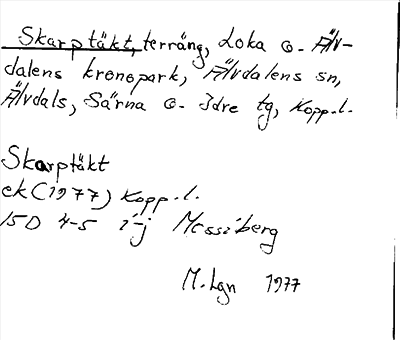 Skarptäkt, terräng, Loka o. Älv-
dalens kronopark, Älvdalens sn,
Älvdals, Särna o. Idre tg, Kopp.l.
Skarptäkt
ek (1977) Kopp.l.
15D 4-5 i-j Mossiberg
M.Lgn 1977